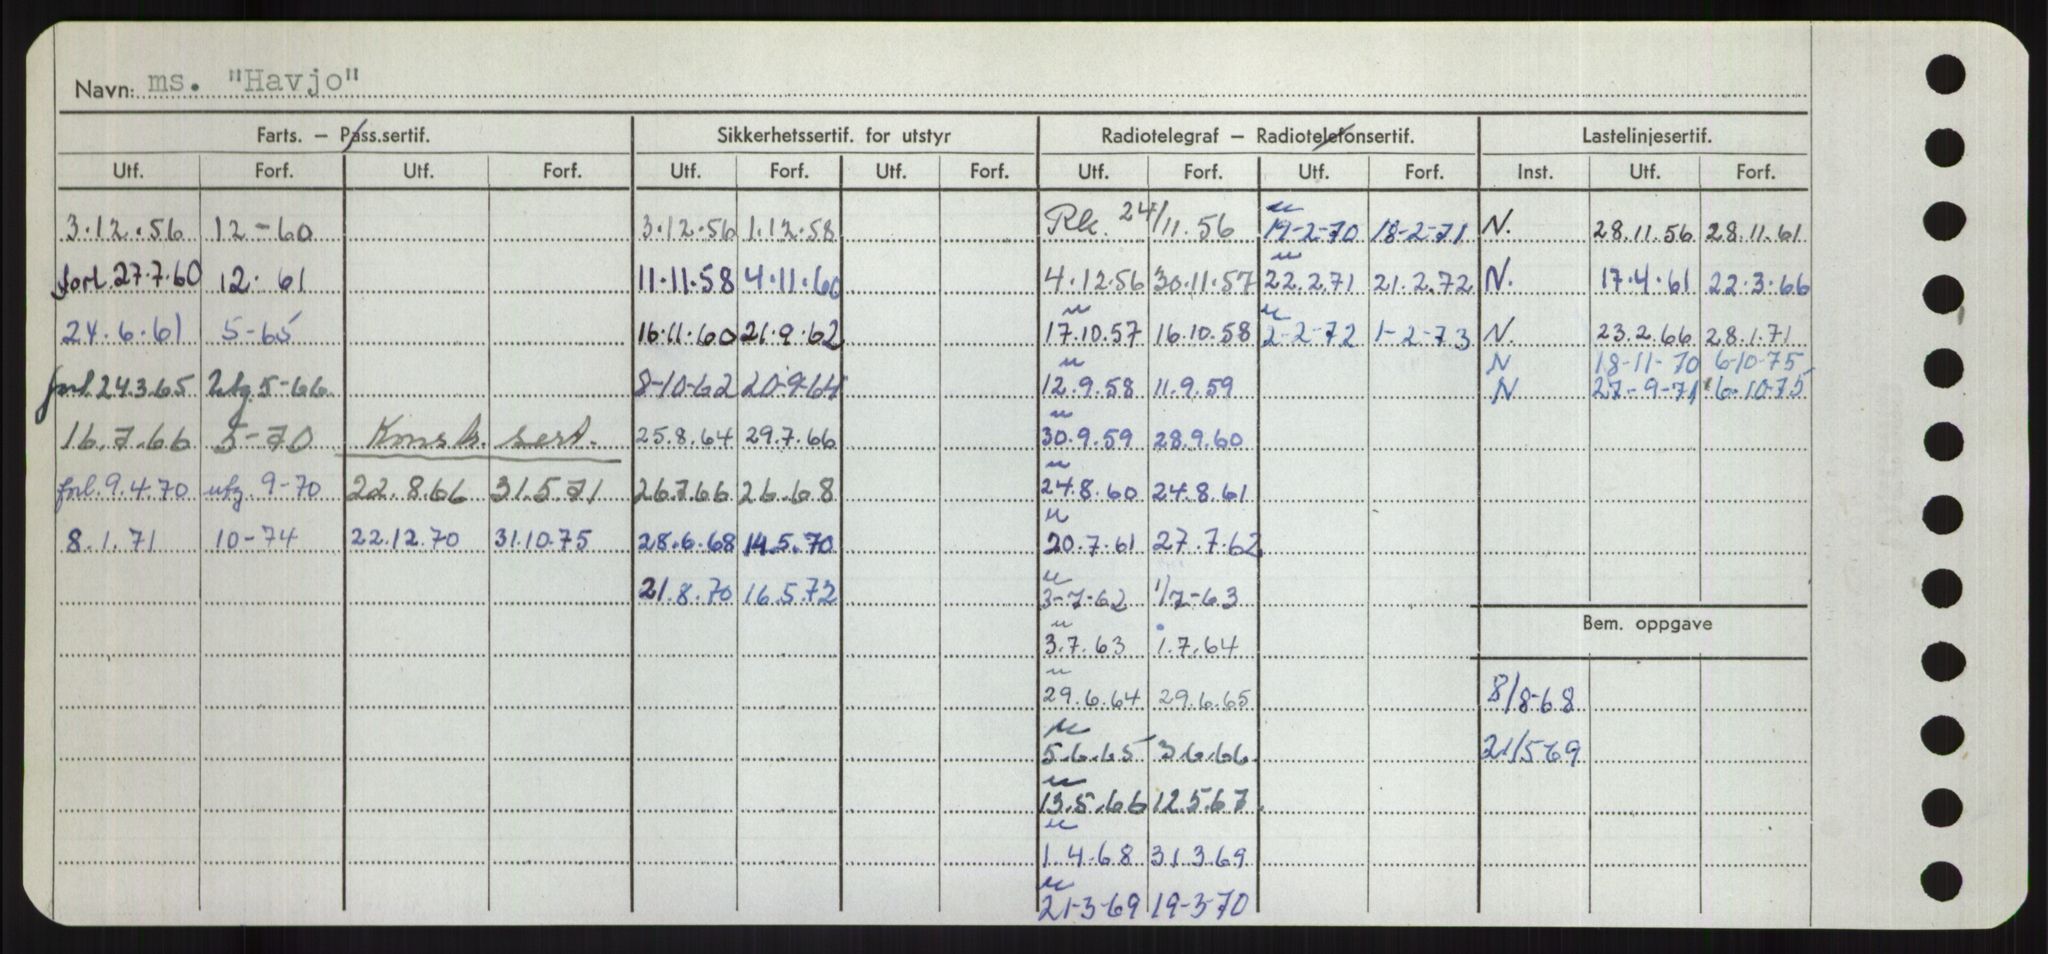 Navn: ms. "Havjo"
Farts. — Pass.sertif. Sikkerhetssertif. for utstyr Radiotelegraf — Radiotelefonsertif. Lastelinjesertif.
Utf. Forf. Utf. Forf. Utf. Forf. Utf. Forf. Utf. Forf. Utf. Forf. Inst. Utf. Forf.
3.12.56 12-60 3.12.56 1.12.58 Rk. 24/11.56 " 19-2-70 18-2-71 N. 28.11.56 28.11.61
forl. 27.7.60 12. 61 11.11.58 4.11.60 4.12.56 30.11.57 " 22.2.71 21.2.72 N. 17.4.61 22.3.66
24.6.61 5-65 16.11.60 21.9.62 " 17.10.57 16.10.58 " 2-2-72 1-2-73 N. 23.2.66 28.1.71
N 18-11-70 6-10-75
forl. 24.3.65 utg 5-66 8-10-62 20-9-64 " 12.9.58 11.9.59 N 27-9-71 6-10-75
16.7.66 5-70 Konstr. sert. 25.8.64 29.7.66 " 30.9.59 28.9.60
forl. 9.4.70 utg. 9-70 22.8.66 31.5.71 26.7.66 26.68 " 24.8.60 24.8.61
8.1.71 10-74 22.12.70 31.10.75 28.6.68 14.5.70 " 20.7.61 27.7.62
21.8.70 16.5.72 " 3-7-62 1/7-63
Bem. oppgave
" 3.7.63 1.7.64
" 29.6.64 29.6.65 8/8-68
" 5.6.65 3.6.66 21/569
" 13.5.66 12.5.67
" 1.4.68 31.3.69
" 21-3-69 19-3-70